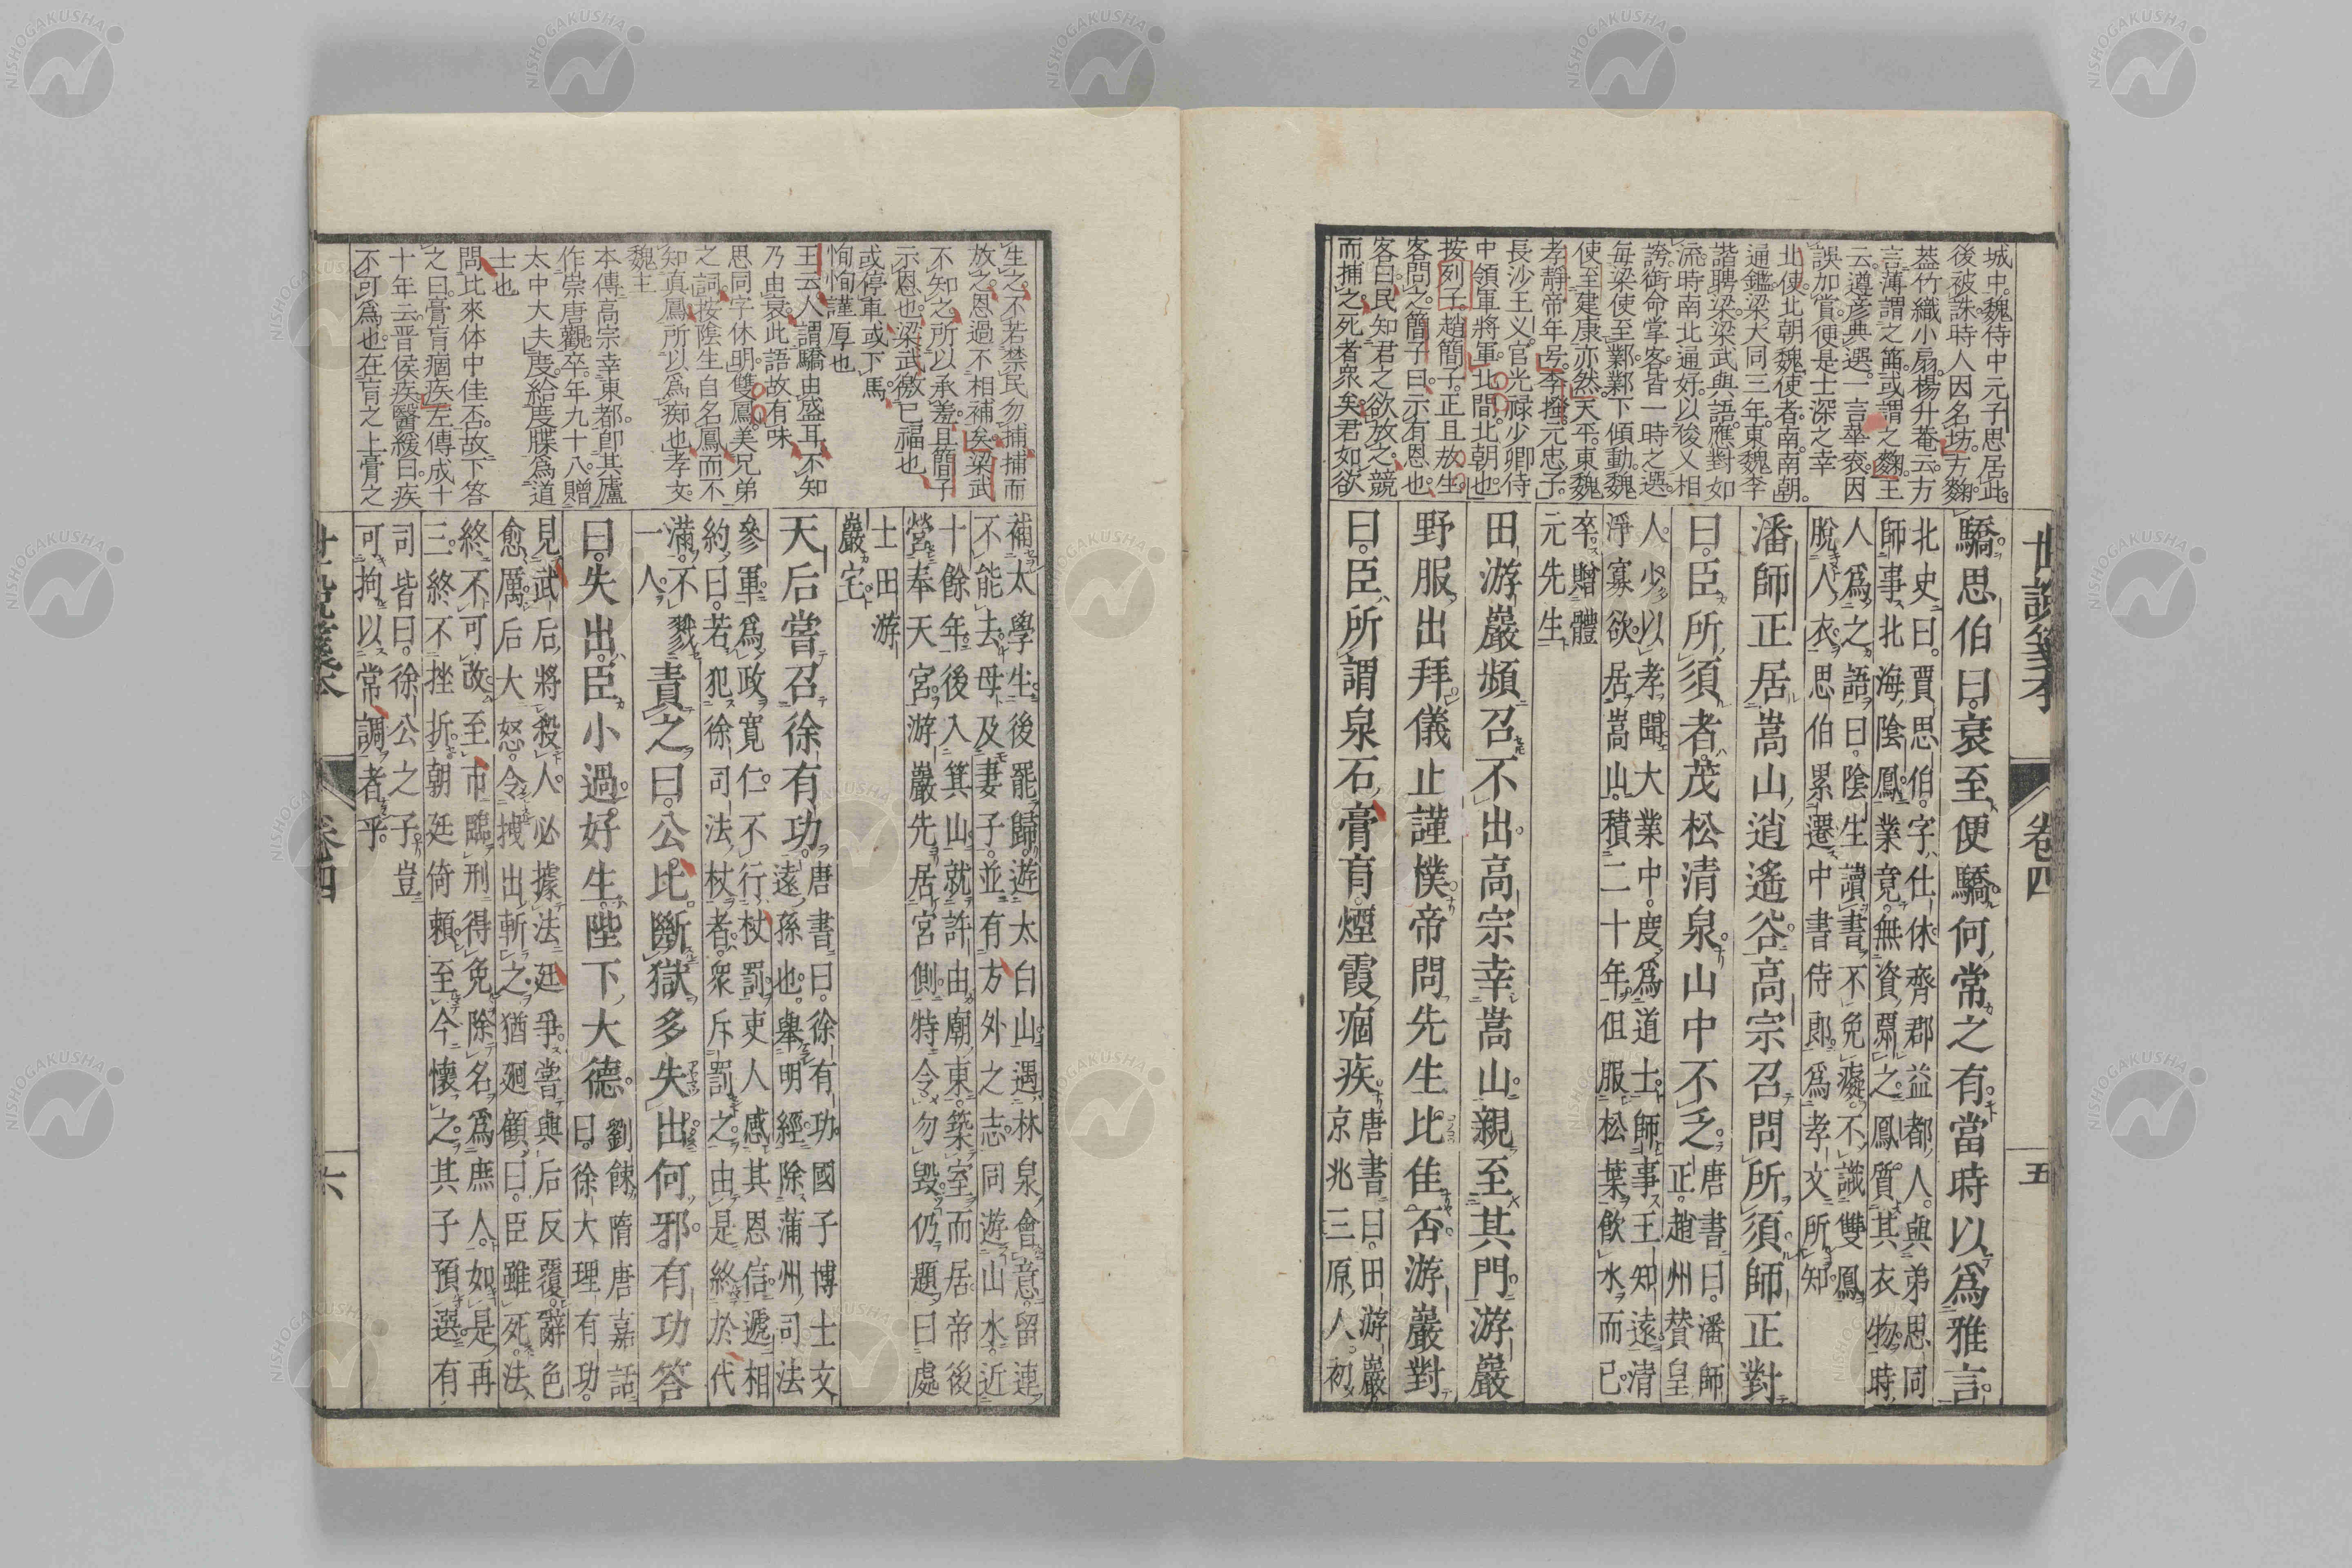 城中。魏侍中元子思居此。
後被誅時人因名坊。方麴。
葢竹織小扇。楊升菴云。方
言薄謂之或謂之麴王
云。遵彦典選。一言華衮。因
誤加賞。便是士深之幸
北使北朝魏使者。南。南朝。
通鑑梁大同三年。東魏李
諧聘梁梁武與語應對如
流。時南北通好。以後又相
誇。銜命掌客。皆一時之選。
毎梁使至鄴鄴下傾動。魏
使至建康亦然。天平。東魏
孝靜帝年号。李搔元忠子。
長沙王义。官光禄少卿侍
中領軍將軍。北間。北朝也。
按列子。趙簡子。正旦放生
客問之。簡子曰。示有恩也。
客曰。民知君之欲放之。競
而捕之。死者衆矣。君如欲
世說箋本
卷四
五
驕。思伯曰。衰至便驕。何常之有。當時以爲雅言。
北史曰。賈思伯。字仕休。齊郡益都人。與弟思同
師事北海陰鳳。業竟。無資酬之。鳳質其衣物。時
人爲之語曰。陰生讀書不免癡。不識雙鳳
脫人衣。思伯累遷中書侍郎。爲孝文所知。
潘師正居嵩山逍遙谷。高宗召問所須。師正對
曰。臣所須者。茂松清泉。山中不乏。
唐書曰。潘師
正。趙州贊皇
人。少以孝聞。大業中。度爲道士。師事王知遠。清
淨寡欲。居嵩山。積二十年。但服松葉飲水而已。
卒。贈體
元先生
田游巖頻召不出。高宗幸嵩山。親至其門。游巖
野服出拜。儀止謹樸。帝問先生比佳否。游巖對
曰。臣所謂泉石膏肓。煙霞痼疾。
唐書曰。田游巖
京兆三原人。初
生之。不若禁民勿捕捕而
放之。恩過不相補矣。梁武
不知之所以承羞且簡子
示恩也。梁武徼已福也
或停車或下馬。
恂恂謹厚也
王云人謂驕由盛耳。不知
乃由衰此語故有味
思同字休明。雙鳳美兄弟
之詞。按陰生自名鳳而不
知真鳳所以爲痴也。孝文。
魏主
本傳高宗幸東都。卽其廬
作崇唐觀。卒年九十八。贈
太中大夫。度。給度牒爲道
士也
問比來体中佳否。故下答
之曰。膏肓痼疾。左傳成十
十年云。晋侯疾。醫緩曰。疾
不可爲也。在肓之上膏之
補太學生。後罷歸。遊太白山。遇林泉會意。留連
不能去。母及妻子。並有方外之志。同遊山水。近
十餘年。後入箕山。就許由廟東。築室而居。帝後
營奉天宮。游巖先居宮側。特令勿毀。仍題曰處
士田游
巖宅
天后嘗召徐有功。
唐書曰。徐有功。國子博士文
遠孫也。舉明經。除蒲州司法
參軍。爲政寬仁。不行杖罰。吏人感其恩信。遞相
約曰。若犯徐司法杖者。衆斥罰之。由是終於代
滿。不戮
一人。
責之曰。公比斷獄多失出何邪。有功答
曰。失出臣小過。好生陛下大德。
劉餗隋唐嘉話
曰。徐大理有功。
見武后將殺人。必據法廷爭。嘗與后反覆。辭色
愈厲。后大怒。令拽出斬之。猶廻顧曰。臣雖死。法
終不可改。至市臨刑得免。除名爲庶人。如是再
三。終不挫折。朝廷倚賴。至今懷之。其子預選。有
司皆曰。徐公之子。豈
可拘以常調者乎。
世說箋本
卷四
六